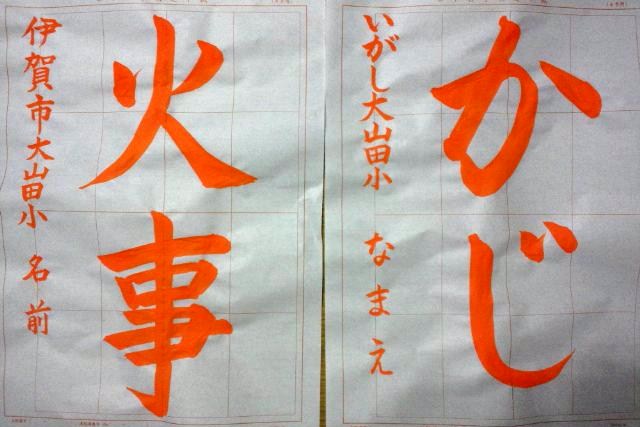 かじ
いがし大山田小 なまえ
火事
伊賀市大山田小 名前